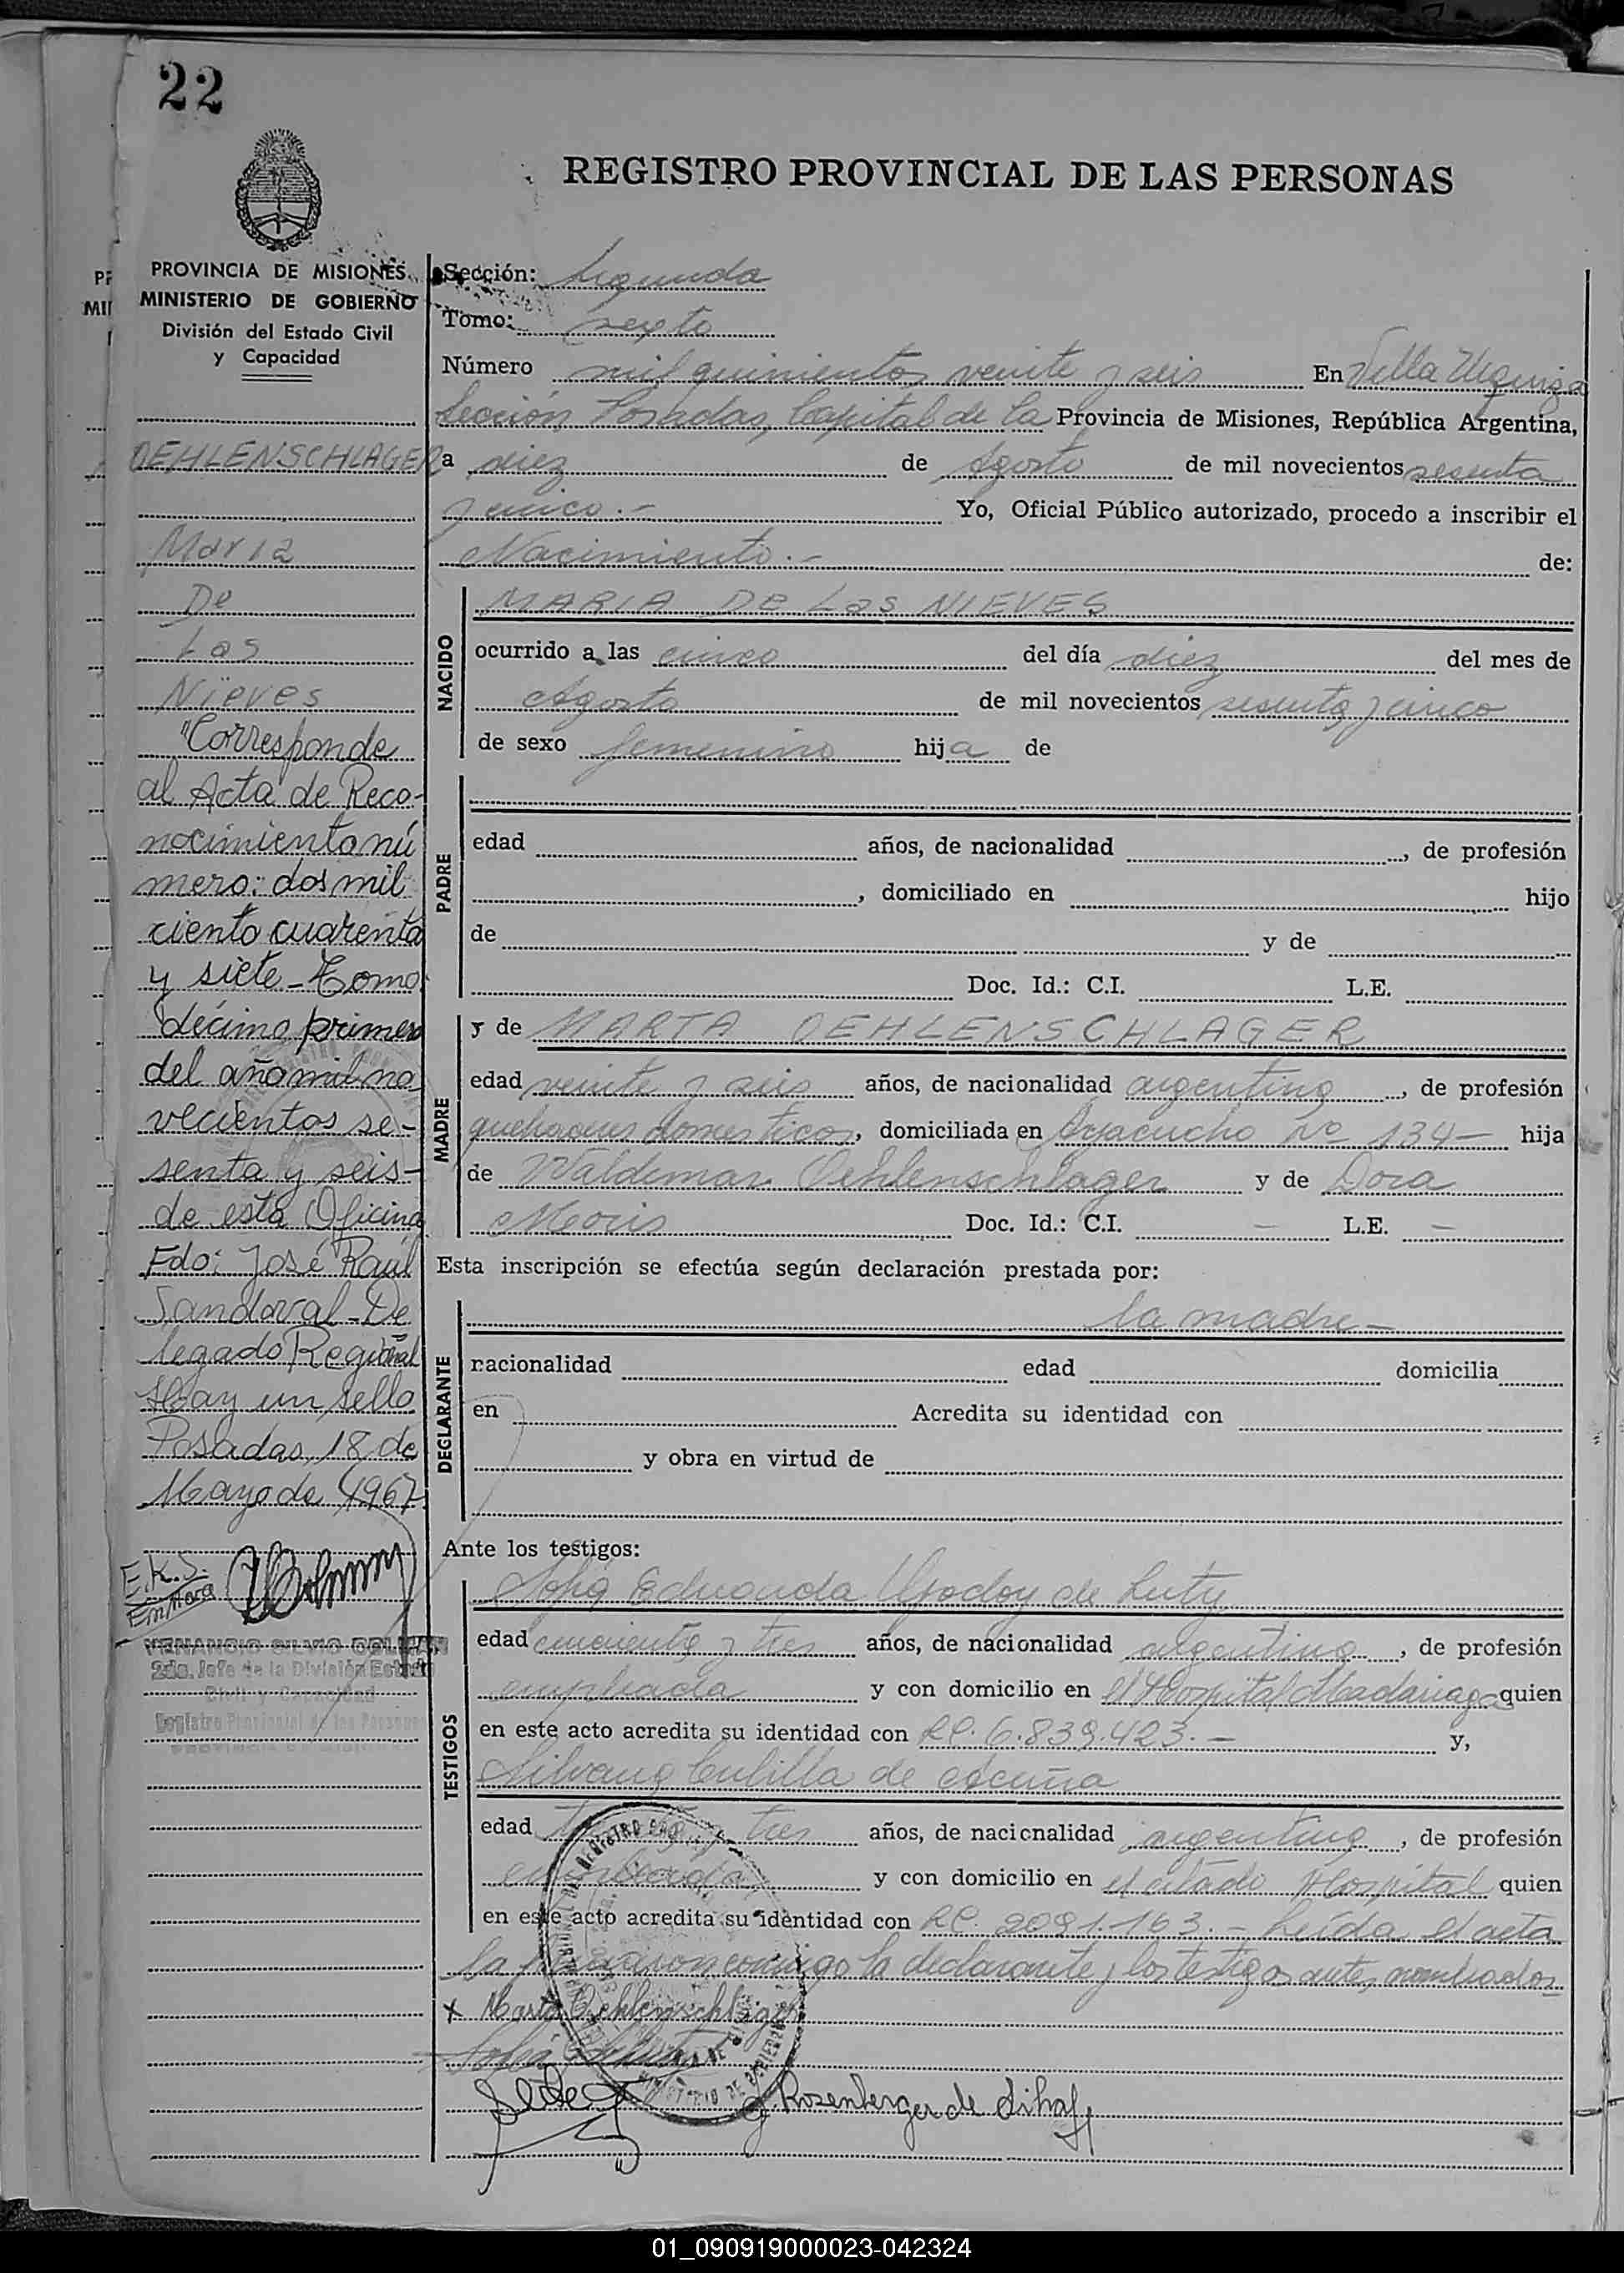 22
REGISTRO PROVINCIAL DE LAS PERSONAS
PROVINCIA DE MISIONES
MINISTERIO DE GOBIERNO
División del Estado Civil
y Capacidad
OEHLENSCHLAGER
Maria
De
Las
Nieves
"Corresponde
al Acta de Reco-
nocimiento nú
mero: dos mil
ciento cuarenta
y siete - Tomo
décimo primero
del año mil no
vecientos se-
senta y seis-
de esta Oficina
Fdo: José Raúl
Sandoval - De
legado Regional
Hay un sello
Posadas, 18 de
Mayo de 1967
E.K.S.
2do. Jefe de la División Estado
Civil y Capacidad
Registro Provincial de las Personas
Sección: Segunda
Tomo: sexto
Número mil quinientos veinte y seis En Villa Urquiza
Sección Posadas, Capital de la Provincia de Misiones, República Argentina,
a diez de Agosto de mil novecientos sesenta
y cinco.- Yo, Oficial Público autorizado, procedo a inscribir el
Nacimiento.- de:
NACIDO
MARIA De Las NIEVES
ocurrido a las cinco del día diez del mes de
Agosto de mil novecientos sesenta y cinco
de sexo femenino hija de
PADRE
edad años, de nacionalidad , de profesión
, domiciliado en hijo
de y de
Doc. Id.: C.I. L.E.
MADRE
y de MARTA OEHLENSCHLAGER
edad veinte y seis años, de nacionalidad argentina, de profesión
quehaceres domesticos, domiciliada en Ayacucho Nº 134- hija
de Waldemar Oehlenschlager y de Dora
Meoris Doc. Id.: C.I. - L.E. -
Esta inscripción se efectúa según declaración prestada por:
DECLARANTE
la madre-
nacionalidad edad domicilia
en Acredita su identidad con
y obra en virtud de
Ante los testigos:
TESTIGOS
Sofia Eduarda Godoy de Luty
edad cincuenta y tres años, de nacionalidad argentina, de profesión
empleada y con domicilio en el Hospital Madariaga quien
en este acto acredita su identidad con LC. 6.839.423.- y,
Silvana Cubilla de Acuña
edad y tres años, de nacionalidad argentina, de profesión
empleada y con domicilio en el citado Hospital quien
en este acto acredita su identidad con LC. 2091.163.- Leída el acta
la firmaron conmigo la declarante y los testigos antes nombrados
x Marta Oehlenschlager
Rosenberger de
01_090919000023-042324